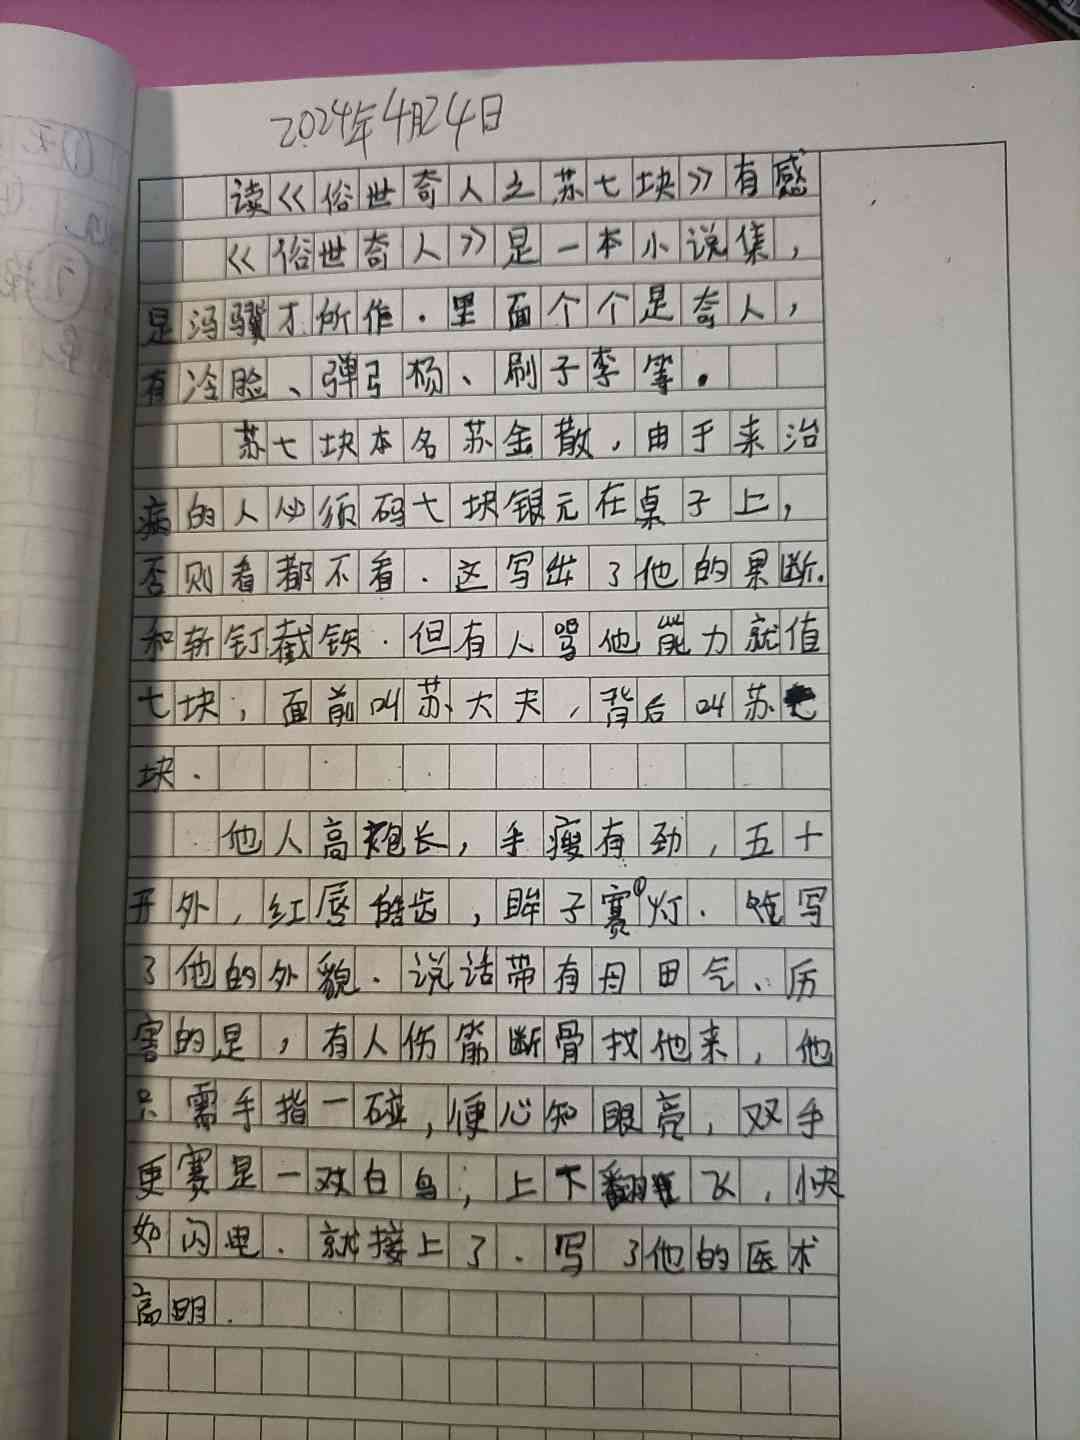 2024年4月24日
读《俗世奇人之苏七块》有感
《俗世奇人》是一本小说集，
是冯骥才所作．里面个个是奇人，
有冷脸、弹弓杨、刷子李等．
苏七块本名苏金散，由于来治
病的人必须码七块银元在桌子上，
否则看都不看．这写出了他的果断．
和斩钉截铁．但有人骂他能力就值
七块；面前叫苏大夫，背后叫苏七
块．
他人高袍长，手瘦有劲，五十
开外，红唇皓齿，眸子赛灯．写
了他的外貌．说话带有丹田气、历
害的是，有人伤筋断骨找他来，他
只需手指一碰，便心知眼亮，双手
更赛是一对白鸟；上下翻飞，快
如闪电．就接上了．写了他的医术
高明．